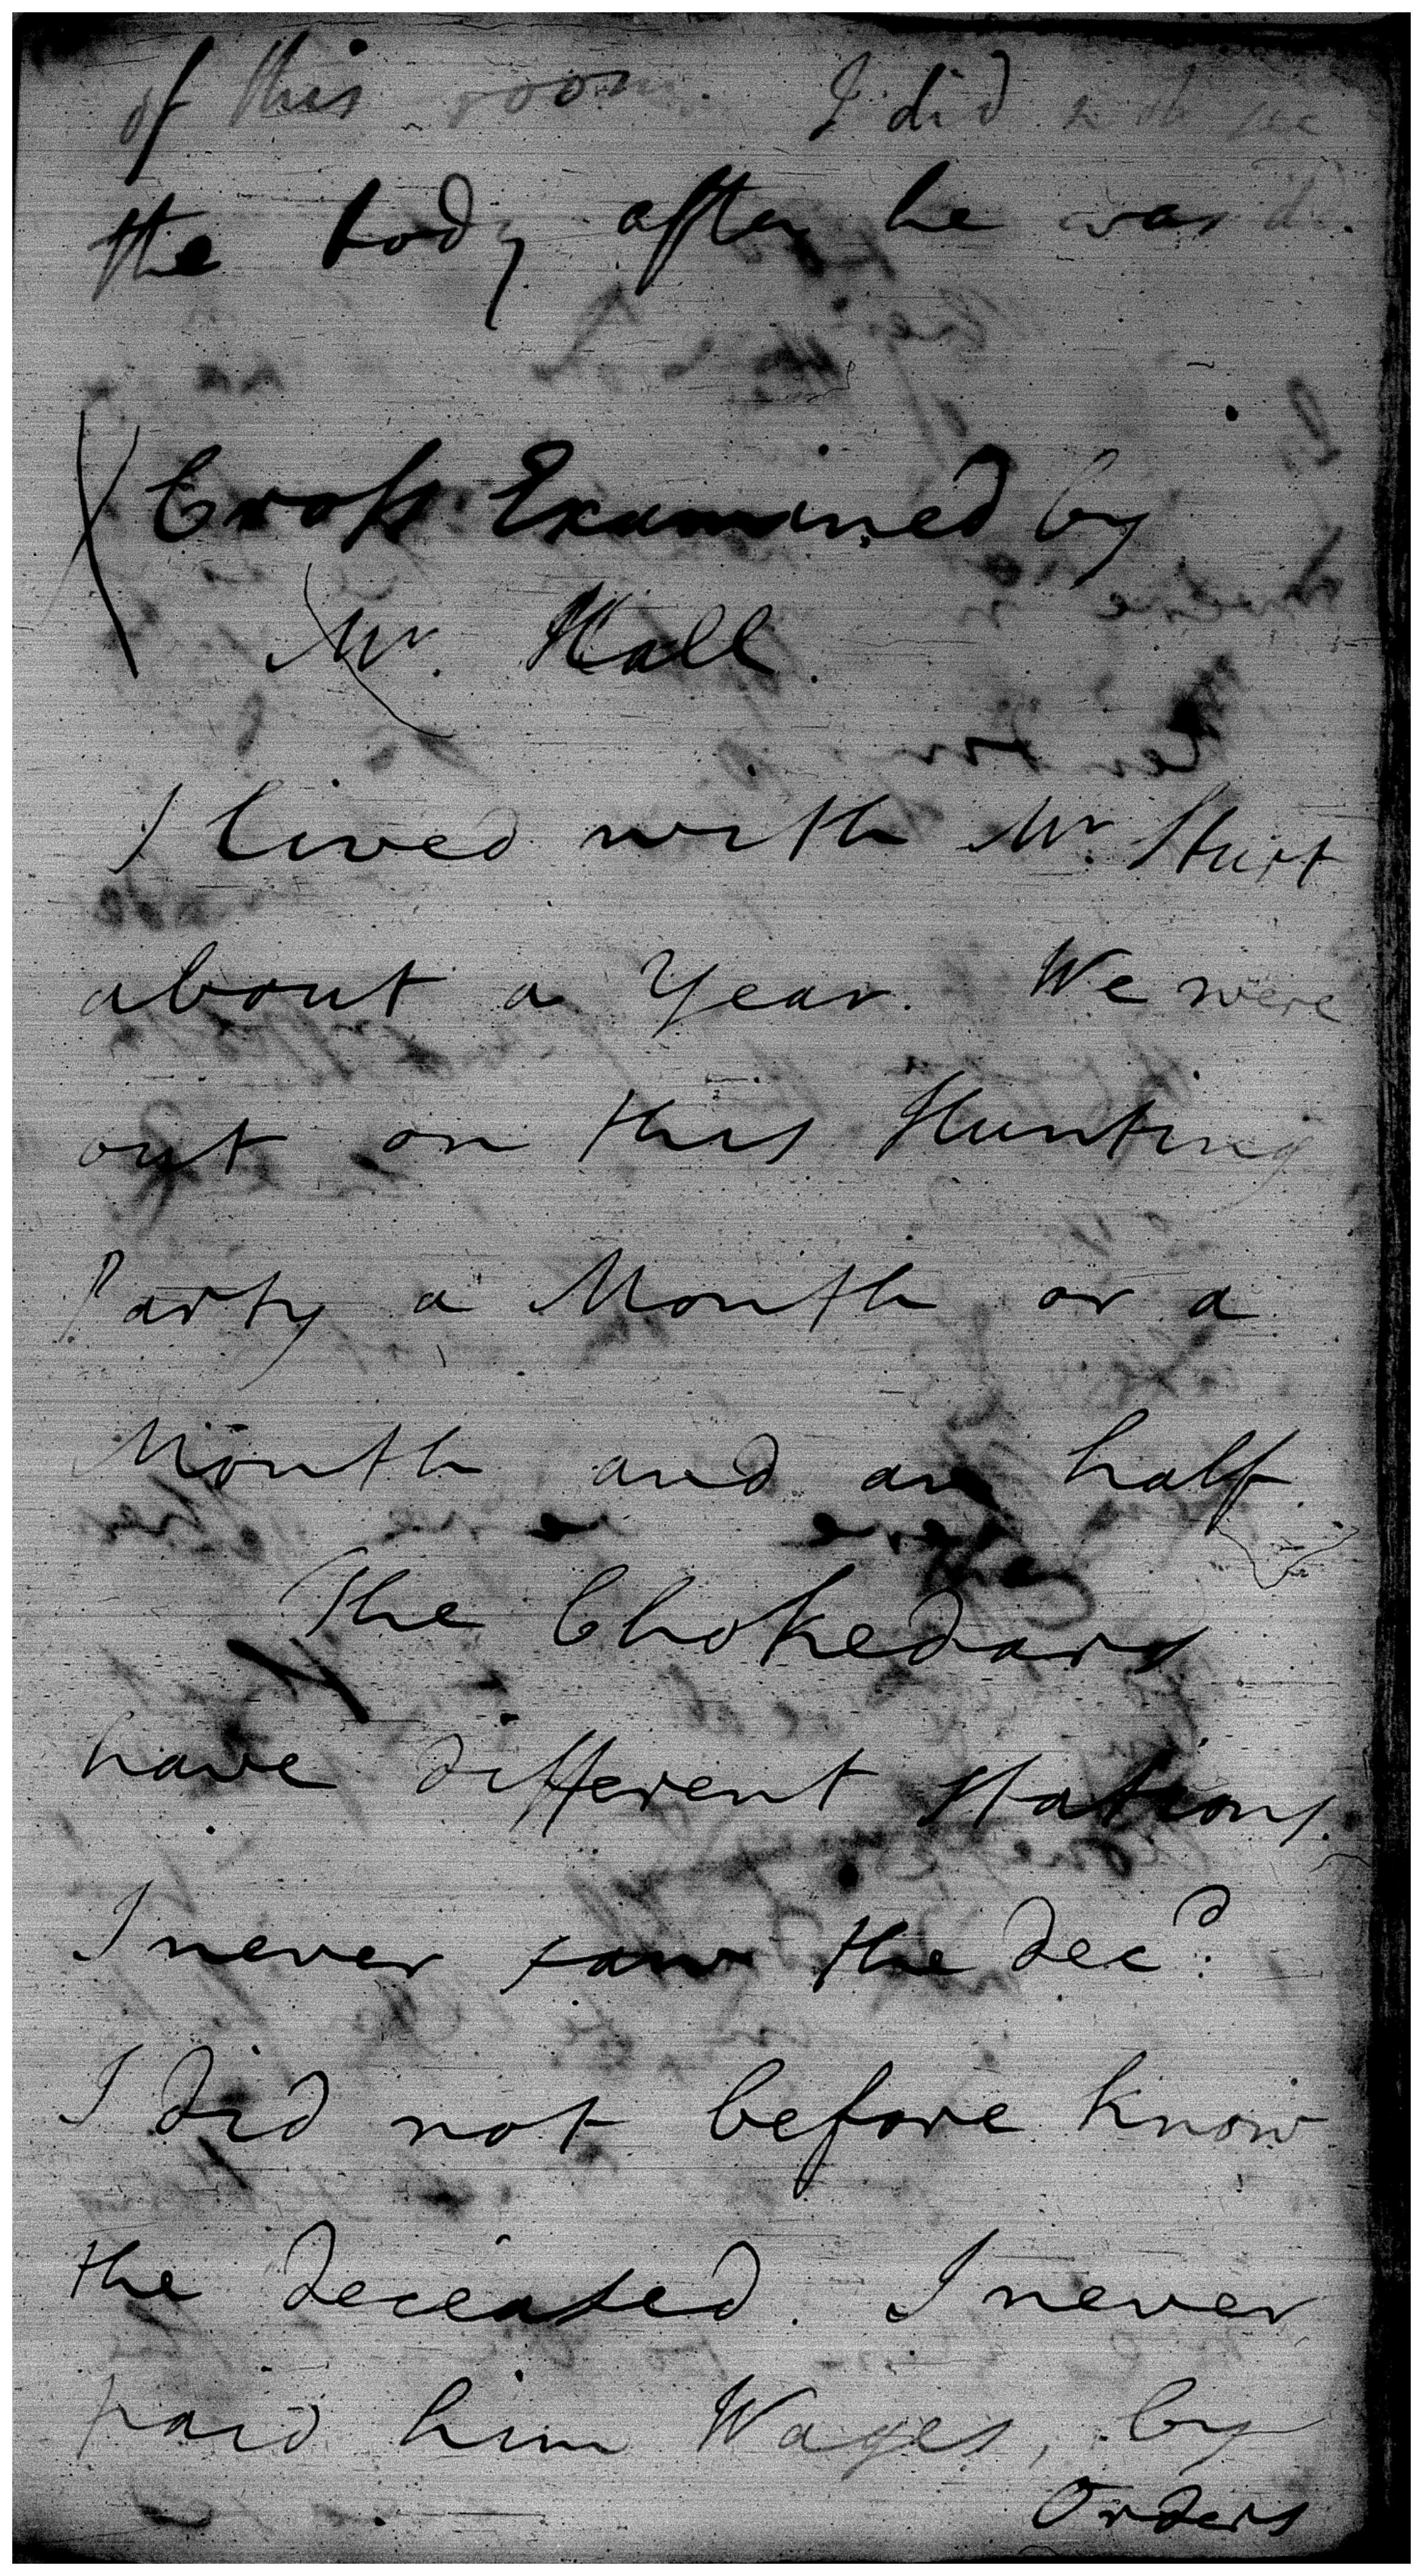 of this room. I did not see
the body after he was
Cross Examined by
Mr. Hall.
I lived with Mr. Sturt
about a Year. We were
out on this Hunting
Party a Month or a
Month and an half.
The Chokedars
have different Stations.
I never saw the decd.
I did not before know
the deceased. I never
paid him Wages, by
Orders